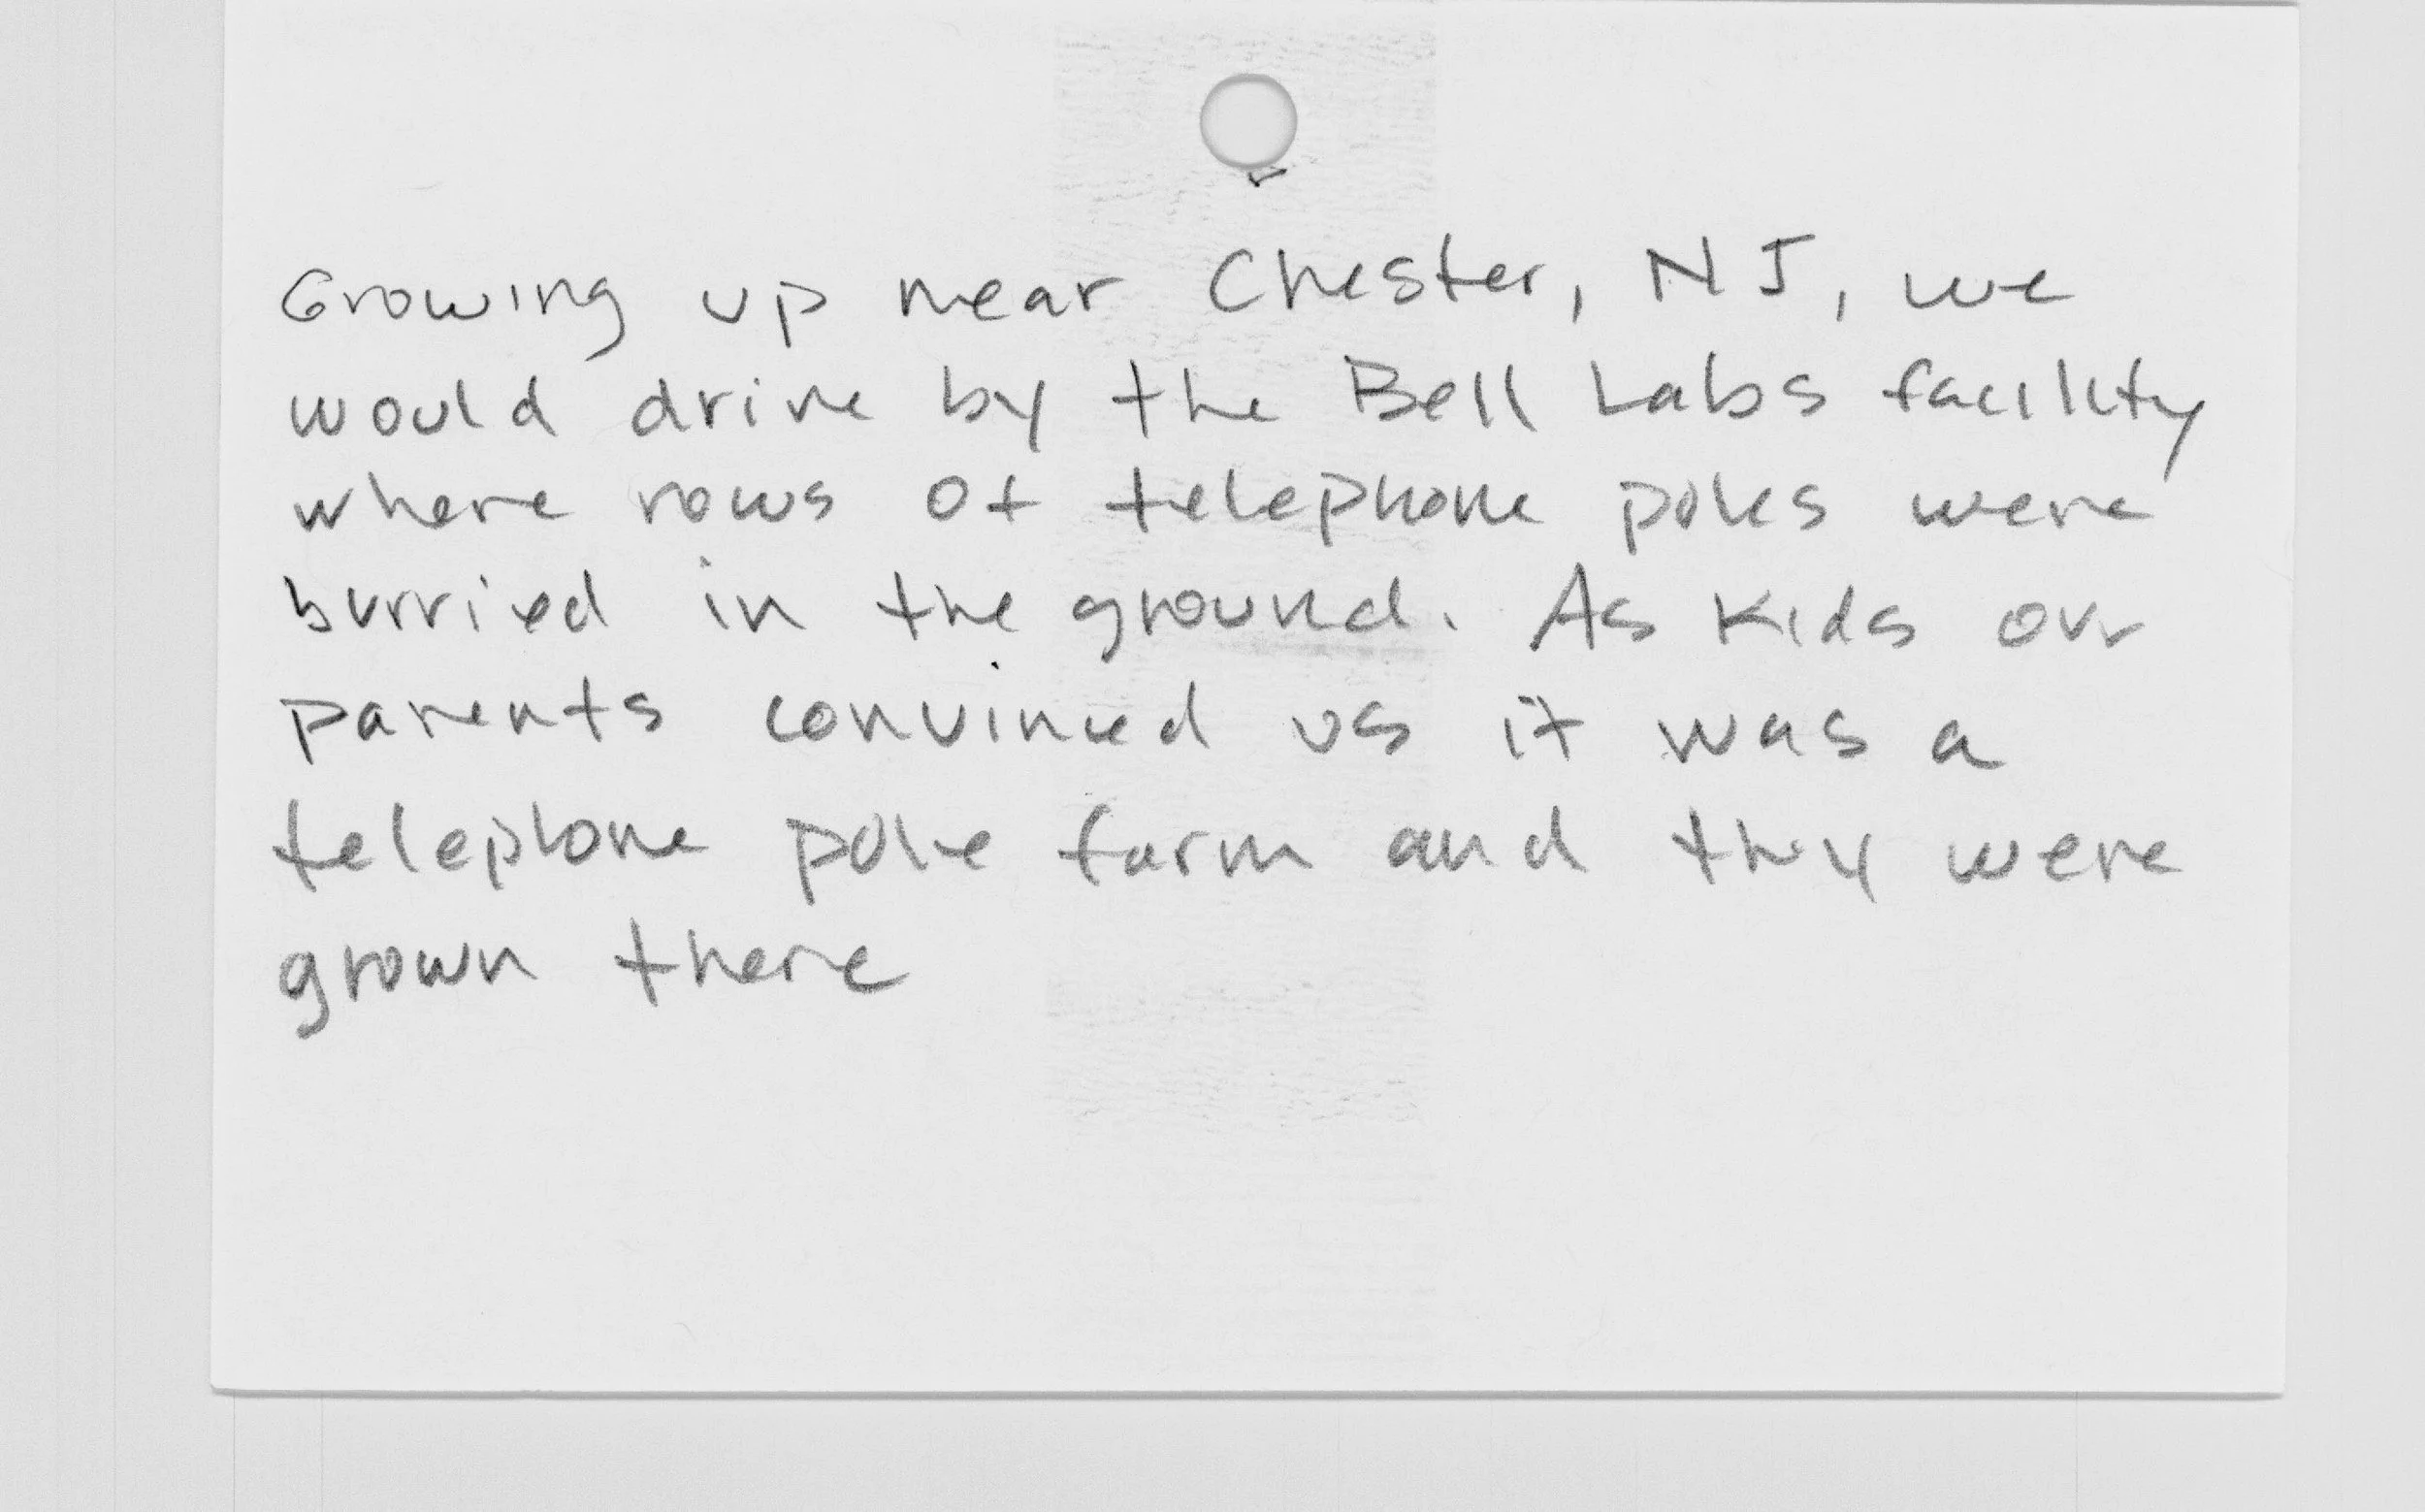 Growing up near Chester, NJ, we
would drive by the Bell Labs facility
where rows of telephone poles were
burried in the ground. As kids our
parents convinced us it was a
telephone pole farm and they were
grown there